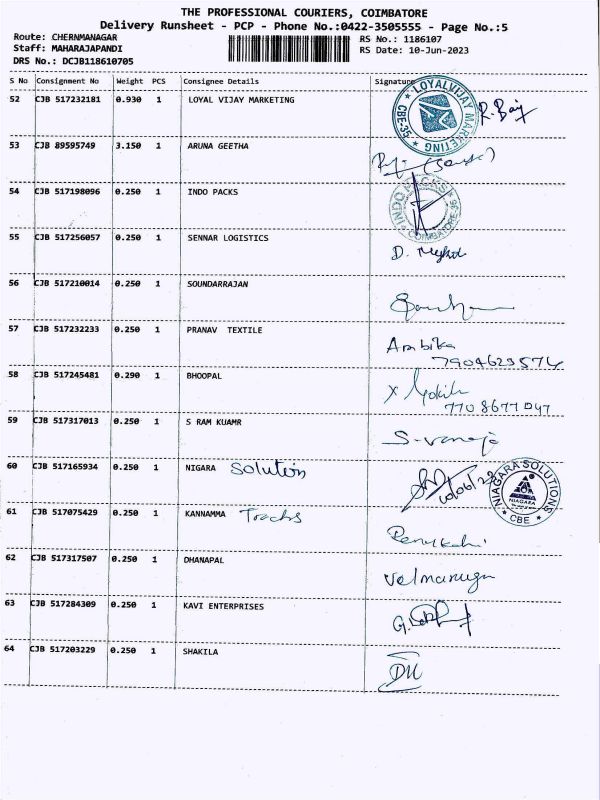 THE PROFESSIONAL COURIERS, COIMBATORE
Delivery Runsheet - PCP - Phone No.:0422-3505555 - Page No.:5
Route: CHERNMANAGAR RS No.: 1186107
Staff: MAHARAJAPANDI RS Date: 10-Jun-2023
DRS No.: DCJB118610705
S No Consignment No Weight PCS Consignee Details Signature
52 CJB 517232181 0.930 1 LOYAL VIJAY MARKETING
LOYALVIJAY MARKETING CBE-35
53 CJB 89595749 3.150 1 ARUNA GEETHA
54 CJB 517198096 0.250 1 INDO PACKS
INDO PACKS COIMBATORE-35
55 CJB 517256057 0.250 1 SENNAR LOGISTICS
56 CJB 517210014 0.250 1 SOUNDARRAJAN
57 CJB 517232233 0.250 1 PRANAV TEXTILE Ambika
7904623574
58 CJB 517245481 0.290 1 BHOOPAL
7708677047
59 CJB 517317013 0.250 1 S RAM KUAMR S-vanaja
60 CJB 517165934 0.250 1 NIGARA Solution 10/06/23
NIAGARA SOLUTIONS CBE
NIAGARA
61 CJB 517075429 0.250 1 KANNAMMA
62 CJB 517317507 0.250 1 DHANAPAL Velmurugan
63 CJB 517284309 0.250 1 KAVI ENTERPRISES
64 CJB 517203229 0.250 1 SHAKILA